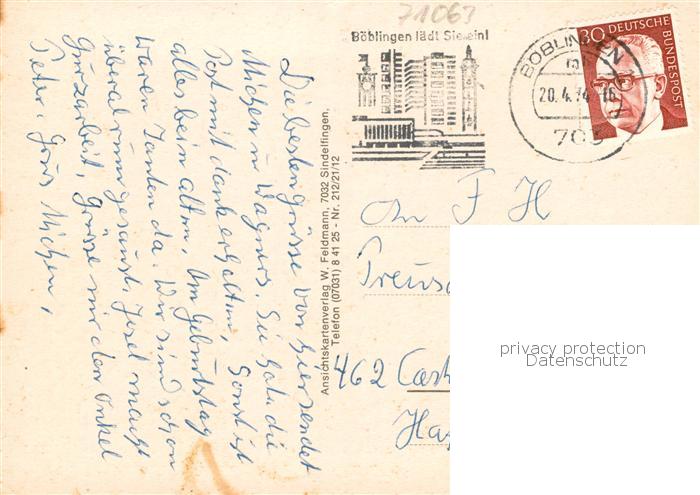 71063
Böblingen lädt Sie ein!
BÖBLINGEN
20.4.74-16
703
30 DEUTSCHE
BUNDESPOST
Die besten Grüsse von hier sendet
Michen u Wagners. Sie habe die
Post mit dank erhalten, Sonst ist
alles beim alten, Am Geburtstag
waren Tanten da. Wir sind schon
überal rum gesaust, Josel macht
Gurzarbeit, Grüsse mir den Onkel
Peter, Grus Michen,
Ansichtskartenverlag W. Feldmann, 7032 Sindelfingen,
Telefon (07031) 8 41 25 - Nr. 212/21/12
An F H
462 Cast
privacy protection
Datenschutz